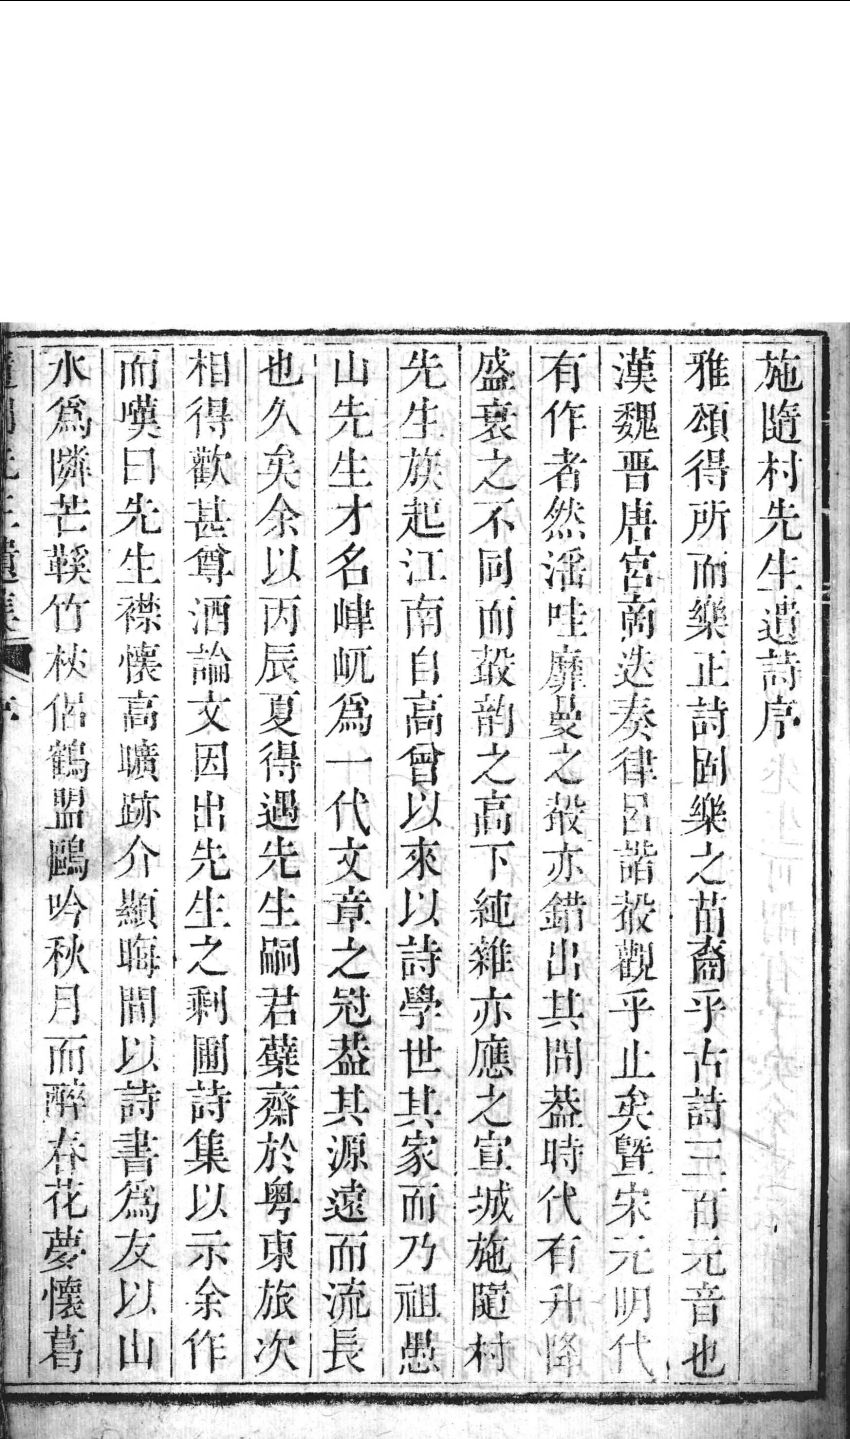 施隨村先生遺詩序
雅頌得所而樂正詩固樂之苗裔乎古詩三百元音也
漢魏晋唐宮商迭奏律呂諧㲈觀乎止矣曁宋元明代
有作者然滛哇靡曼之㲈亦錯出其間葢時代有升降
盛衰之不同而㲈韵之高下純雜亦應之宣城施隨村
先生族起江南自高曾以來以詩學世其家而乃祖愚
山先生才名崋屼爲一代文章之冠葢其源遠而流長
也久矣余以丙辰夏得遇先生嗣君蘗齋於粤東旅次
相得歡甚尊酒論文因出先生之剩圃詩集以示余作
而嘆曰先生襟懷高曠跡介顯晦間以詩書爲友以山
水爲隣芒鞵竹杖侶鶴盟鷗吟秋月而醉春花夢懷葛
隨村先生遺集 序